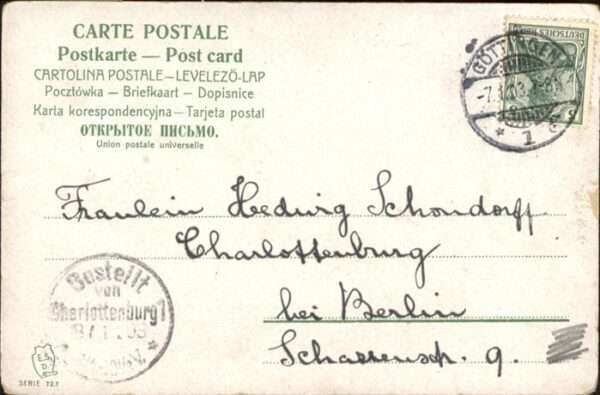 CARTE POSTALE
Postkarte — Post card
CARTOLINA POSTALE – LEVELEZŐ-LAP
Pocztówka – Briefkaart – Dopisnice
Karta korespondencyjna – Tarjeta postal
ОТКРЫТОЕ ПИСЬМО.
Union postale universelle
DEUTSCHES
GÖTTINGEN
* 1
Fraulein Hedwig Schondorff
Charlottenburg
bei Berlin
9.
Bestellt
von
Charlottenburg 1
SERIE 727